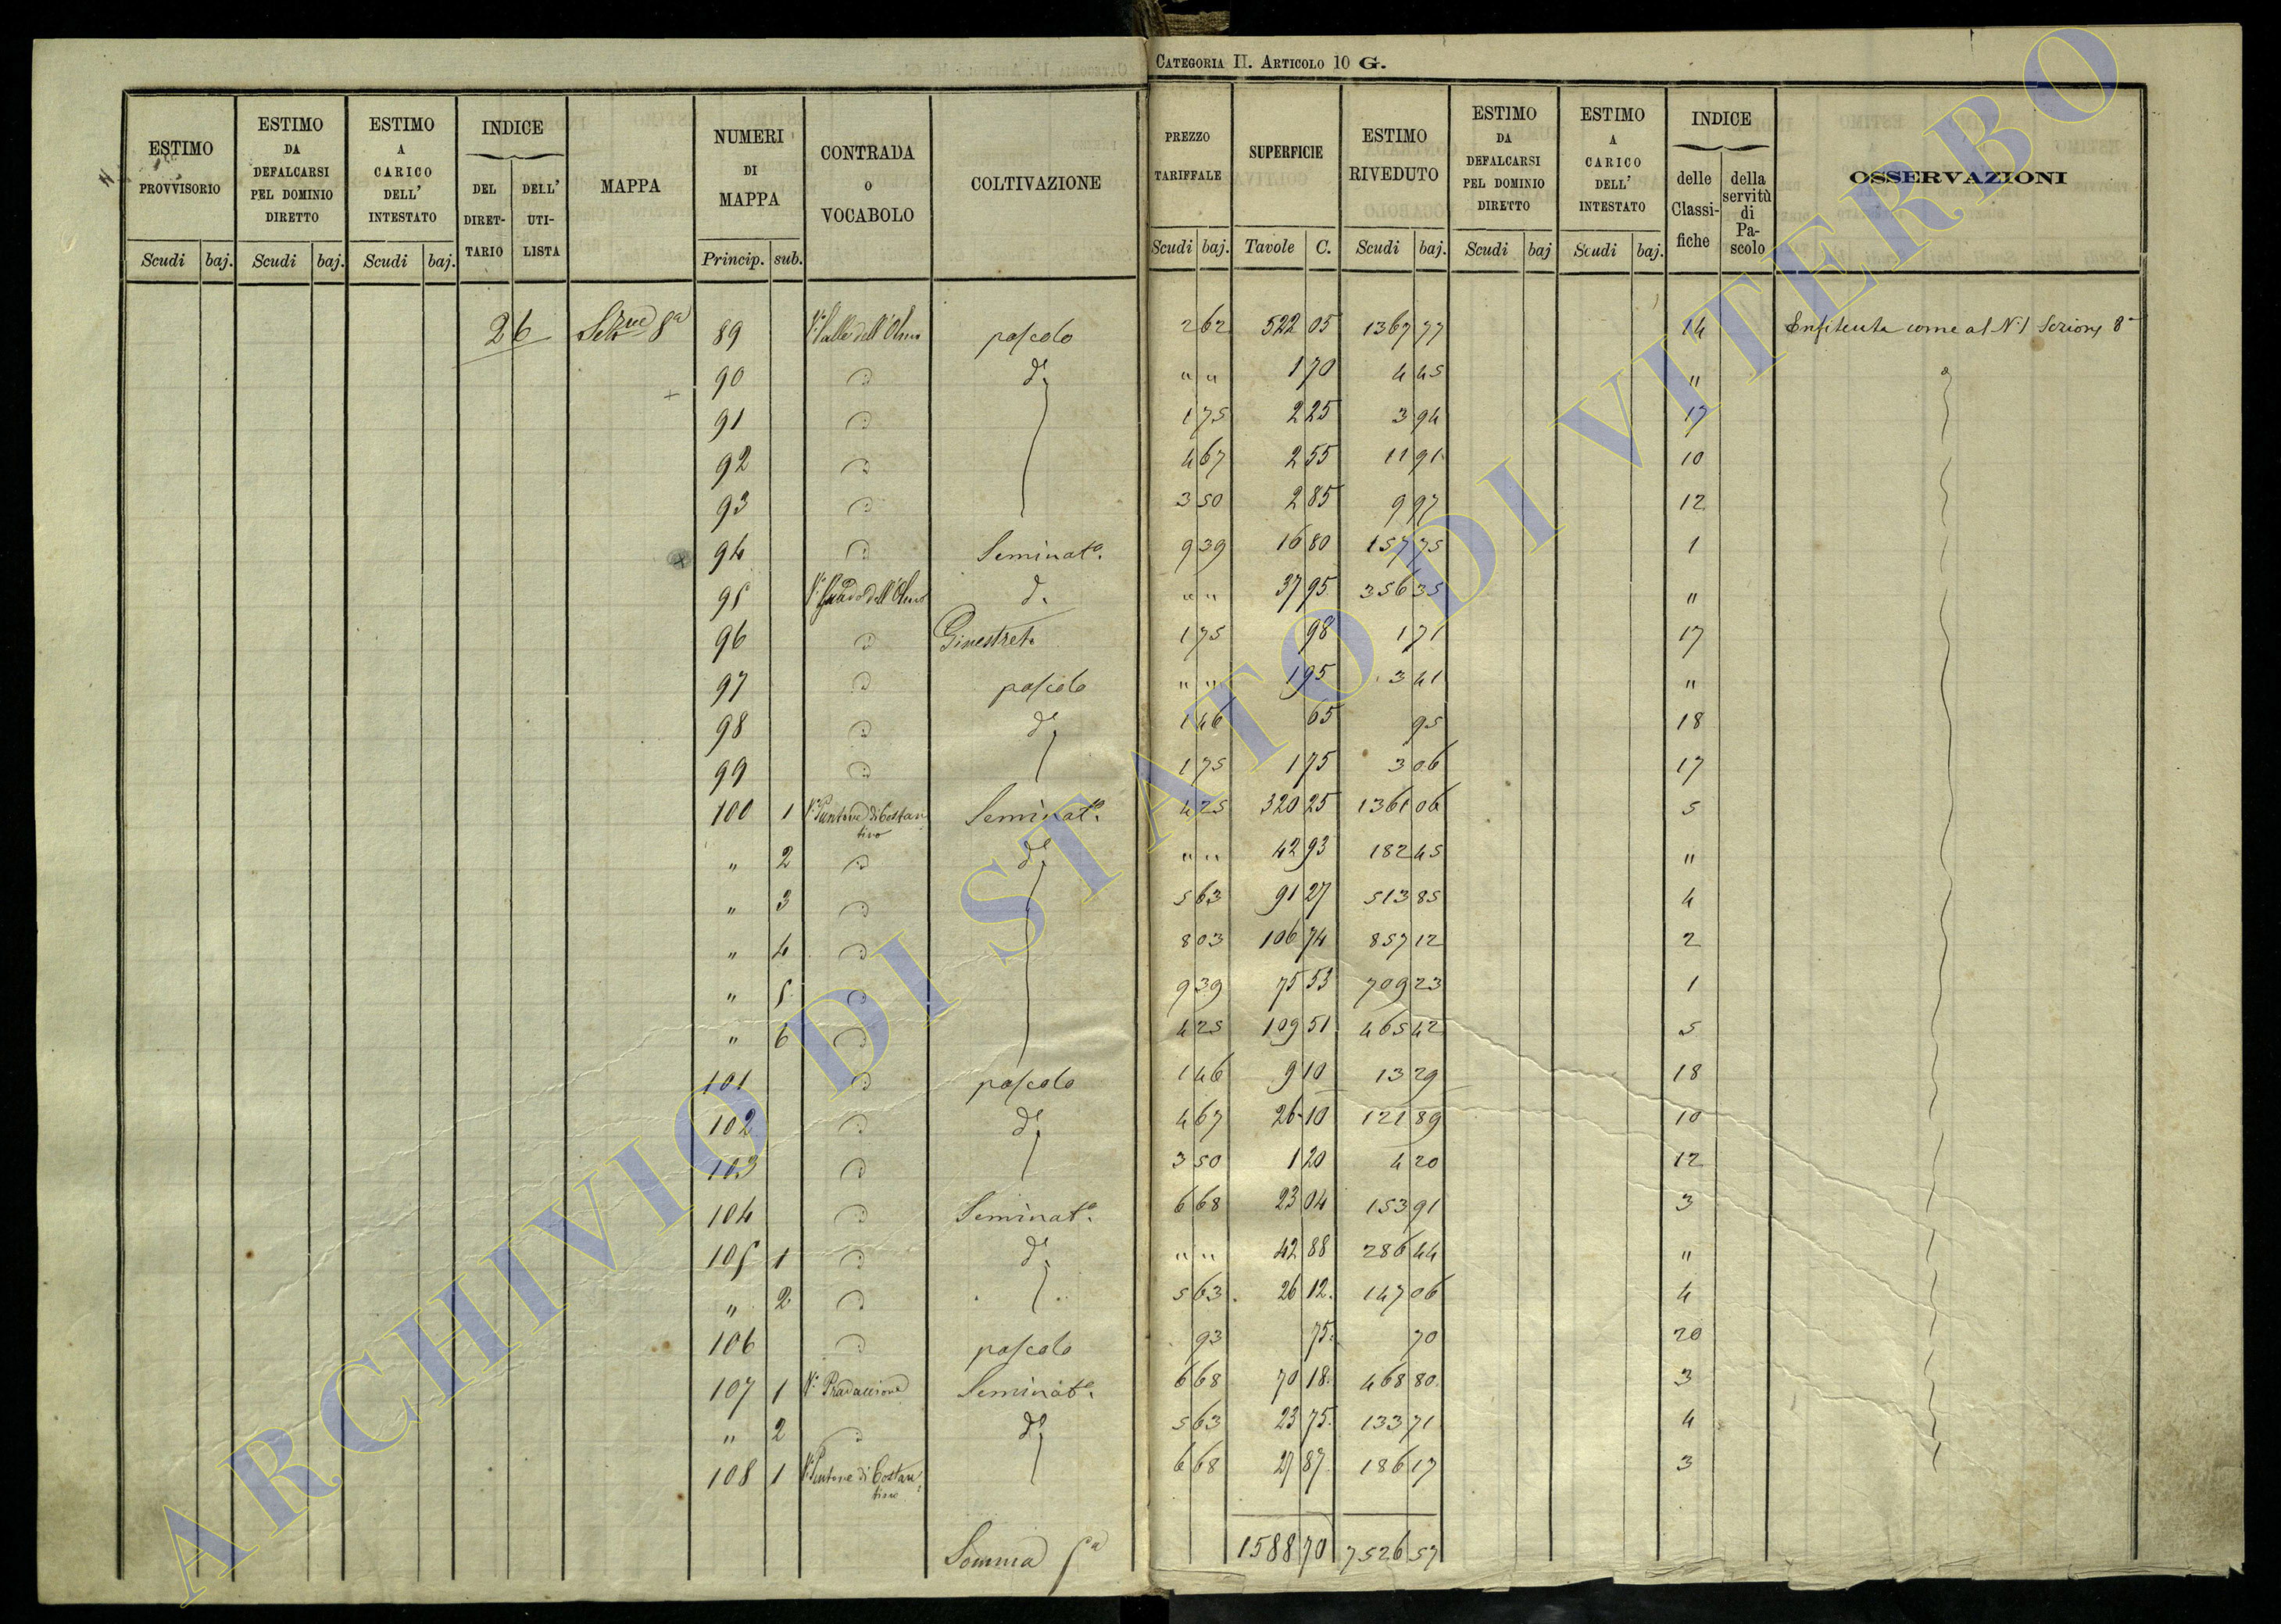 CATEGORIA II. ARTICOLO 10 G.
ESTIMO PROVVISORIO
ESTIMO DA DEFALCARSI PEL DOMINIO DIRETTO
ESTIMO A CARICO DELL' INTESTATO
INDICE
DEL DIRETTARIO
DELL' UTILISTA
MAPPA
NUMERI DI MAPPA
CONTRADA O VOCABOLO
COLTIVAZIONE
PREZZO TARIFFALE
SUPERFICIE
ESTIMO RIVEDUTO
ESTIMO DA DEFALCARSI PEL DOMINIO DIRETTO
ESTIMO A CARICO DELL' INTESTATO
INDICE
delle Classifiche
della servitù di Pascolo
OSSERVAZIONI
Scudi baj. Scudi baj. Scudi baj. Princip. sub. Scudi baj. Tavole C. Scudi baj. Scudi baj Scudi baj.
26 Sezne 8a 89 Vo Valle dell'Olmo pascolo 2 62 522 05 1367 77 14 Enfiteuta come al N. 1 Sezione 8a
90 do " " 1 70 4 45 "
91 1 75 2 25 3 94 17
92 4 67 2 55 11 91 10
93 3 50 2 85 9 97 12
94 Seminato. 9 39 16 80 157 75 1
95 Vo Guado dell'Olmo do " " 37 95 356 35 "
96 Ginestreto 1 75 98 1 71 17
97 pascolo " " 1 95 3 41 "
98 do 1 46 65 95 18
99 1 75 1 75 3 06 17
100 1 Vo Puntone di Costantino Seminato. 4 25 320 25 1361 06 5
" 2 do " " 42 93 182 45 "
" 3 5 63 91 27 513 85 4
" 4 8 03 106 74 857 12 2
" 5 9 39 75 53 709 23 1
" 6 4 25 109 51 465 42 5
101 pascolo 1 46 9 10 13 29 18
102 do 4 67 26 10 121 89 10
103 3 50 1 20 4 20 12
104 Seminato. 6 68 23 04 153 91 3
105 1 do " " 42 88 286 44 "
" 2 5 63 26 12 147 06 4
106 pascolo 93 75 70 20
107 1 Vo Pradaccione Seminato. 6 68 70 18 468 80 3
" 2 do 5 63 23 75 133 71 4
108 1 Vo Puntone di Costantino 6 68 27 87 186 17 3
Somma Sa 1588 70 7526 57
ARCHIVIO DI STATO DI VITERBO